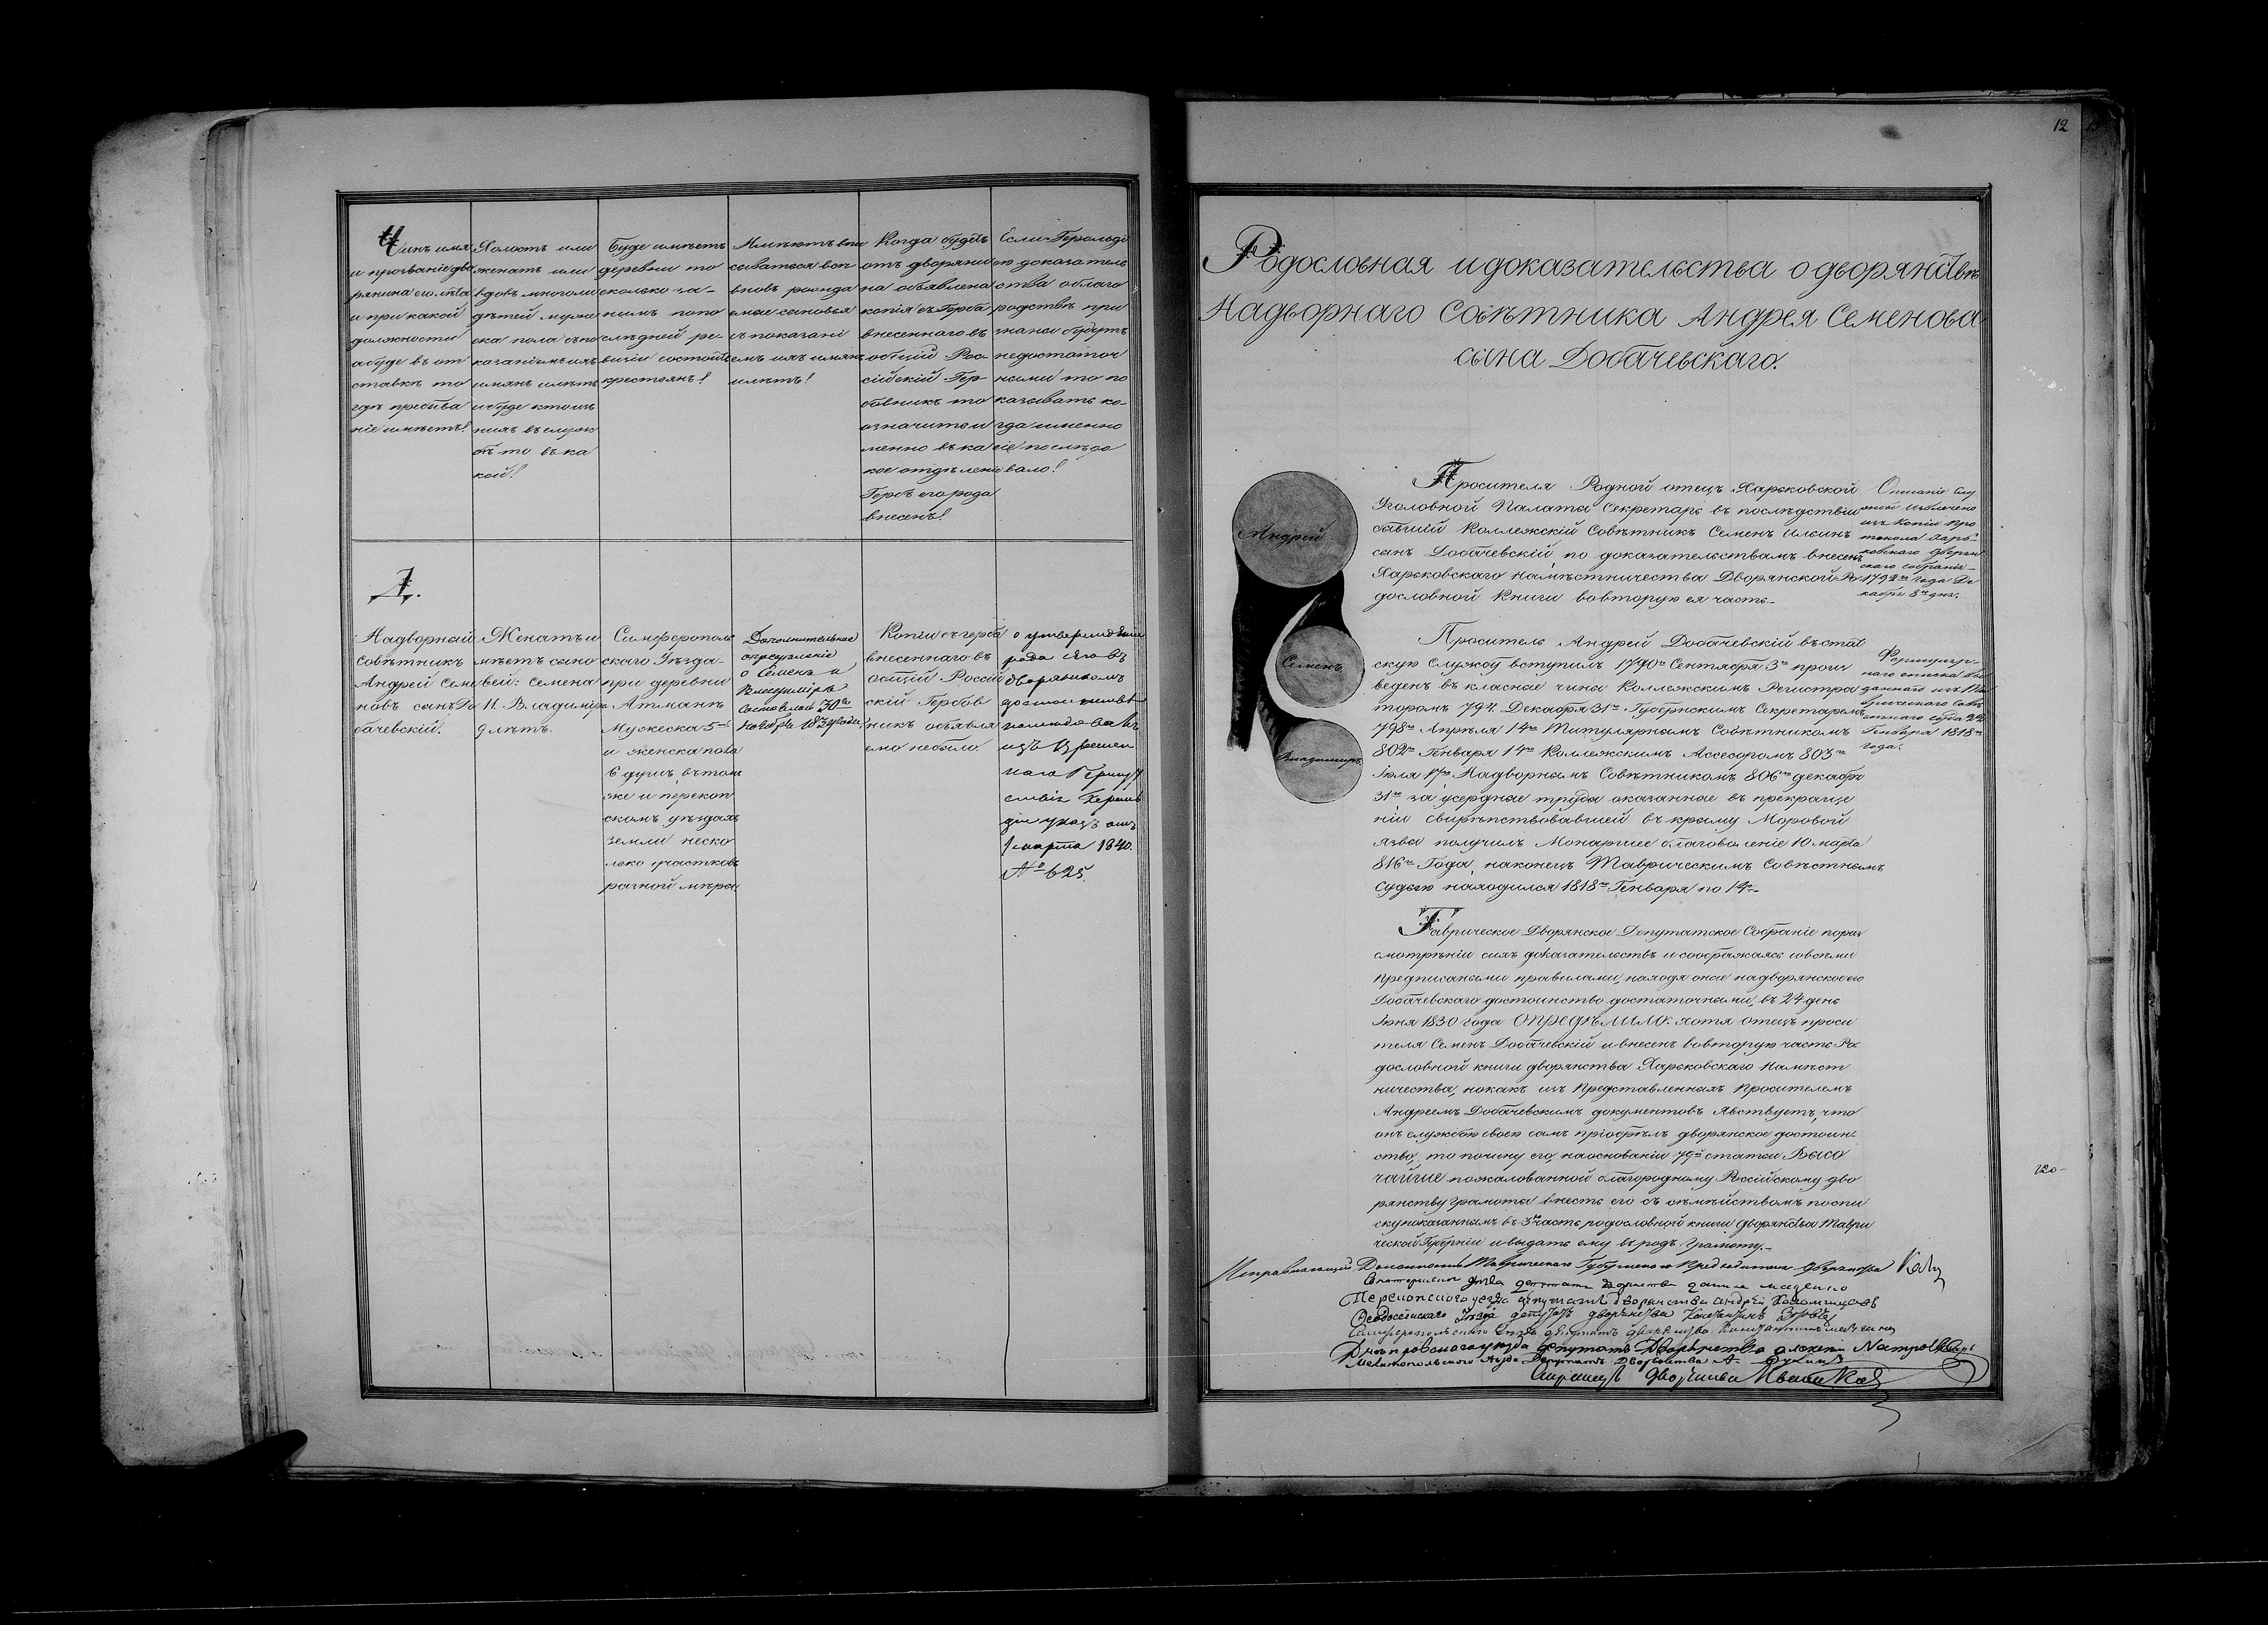 Чинъ имя
и прозваніе дво
рянина его лѣта
и при какой
должности
а буде въ от
ставкѣ то
гдѣ пребыва
ніе имѣетъ!
Холостъ или
женатъ или
вдовъ многоли
дѣтей муже
ска пола съ по
казаніемъ ихъ
имянъ и лѣтъ
и буде кто изъ
нихъ въ служ
бѣ то въ ка
кой!
Буде имѣетъ
деревни то
сколько за-
нимъ по по
слѣдней ре-
визіи состоитъ
крестьянъ!
сываться всѣ
вновь рожда
емые сыновья
съ показані
емъ ихъ имянъ
и лѣтъ!
Когда будетъ
отъ дворяни
на объявлена
копія съ Герба
внесеннаго въ
общій Рос-
сійскій Гер-
бовникъ то
означить и
менно въ ка
кое отдѣлені
Гербъ его рода
внесенъ!
Если Герольді
ею доказатель
ства облаго
родствѣ при
знаны будутъ
недостаточ
ными то по
казывать ко-
гда именно
сіе послѣдо
вало!
Д.
Надворный
Совѣтникъ
Андрей Семе
новъ сынъ До
бачевскій.
Женатъ и
мѣетъ сыно
вей: Семена
11. Владиміра
9 лѣтъ.
Симферополь
скаго Уѣзда-
при деревни
Атманъ
Мужеска 5-ть
и женска пола
6 душъ, въ томъ
же и перекоп
скомъ уѣздахъ
земли неско
лько участковъ
разной мѣры
Дополнительное
опредѣленіе
о Семенѣ и
Владимірѣ
состоялось 30го
Ноября 1839 года.
Копіи съ герба
внесеннаго въ
общій Россій
скій Гербов
никъ объявля
емо небыло.
о утвержденіи
рода его въ
дворянскомъ
достоинствѣ
послѣдовалъ
изъ Времен
наго Присут
ствія Героль
діи указъ отъ
марта 1840.
№ 625.
12
Родословная и доказательства о дворянствѣ
Надворнаго Совѣтника Андрея Семенова
сына Добачевскаго.
Андрей
Семенъ
Владимиръ
Просителя Родной отецъ Харьковской
Уголовной Палаты Секретарь въ послѣдствіи
бывшій Коллежскій Совѣтникъ Семенъ Ильинъ
сынъ Добачевскій, по доказательствамъ внесенъ
Харьковскаго намѣстничества Дворянской Ро
дословной Книги во вторую ея часть.-
Описаніе слу
жбы извлечено
изъ копіи про
токола Харь-
ковскаго дворян
скаго собранія-
года Де
кабря 8го дня.
Проситель Андрей Добачевскій въ стат
скую Службу вступилъ 1790го Сентября 3го произ
веденъ въ класные чины Коллежскимъ Регистра
торомъ 794. Декабря 31го Губернскимъ Секретаремъ
798го Апрѣля 14го Титулярнымъ Совѣтникомъ
802го Генваря 14го Коллежскимъ Ассесоромъ 803го
Іюля 17го Надворнымъ Совѣтникомъ 806го декабря
31го за усердные труды оказанные въ прекраще
ніи свирѣпствовавшей въ крыму Моровой
язвы получилъ Монаршее благоволеніе 10 марта
816го Года, наконецъ Таврическимъ Совѣстнымъ
Судьею находился 1818го Генваря по 14е.-
Формуляр-
наго списка вы
даннаго изъ Та
врическаго Совѣ
стнаго суда 22
Генваря 1818го
года.
Таврическое Дворянское Депутатское Собраніе по раз
смотрѣніи сихъ доказательствъ и сображаясь со всѣми
предписаными правилами, находя оные на дворянское его
Добачевскаго достоинство достаточными, въ 24 день
Іюня 1830 года ОПРЕДѢЛИЛО: хотя отецъ проси
теля Семенъ Добачевскій и внесенъ во вторую часть Ро-
дословной книги дворянства Харьковскаго Намѣст
ничества, но какъ изъ Представленныхъ Просителемъ
Андреемъ Добачевскимъ документовъ явствуетъ, что
онъ службою своею самъ пріобрѣлъ дворянское достоин-
ство, то по чину его, на основаніи 79й статьи Высо
чайше пожалованной благородному Россійскому дво
рянству грамоты внесть его съ сѣмѣйствомъ по спи
ску показаннымъ въ 3ю часть родословной книги дворянства Таври
ческой Губерніи и выдать ему въ родъ грамоту.-
Исправляющій Должность Таврическаго Губернскаго Предводителя Дворянства
Перекопскаго уезда депутатъ дворянства андрей
Ѳеодосійскаго Уезда депутатъ дворянства
Симферопольскаго уезда депутатъ дворянства
Днепровскаго уезда депутатъ Дворянства
Мелитопольскаго уезда Депутатъ Дворянства А.
Секретарь дворянства